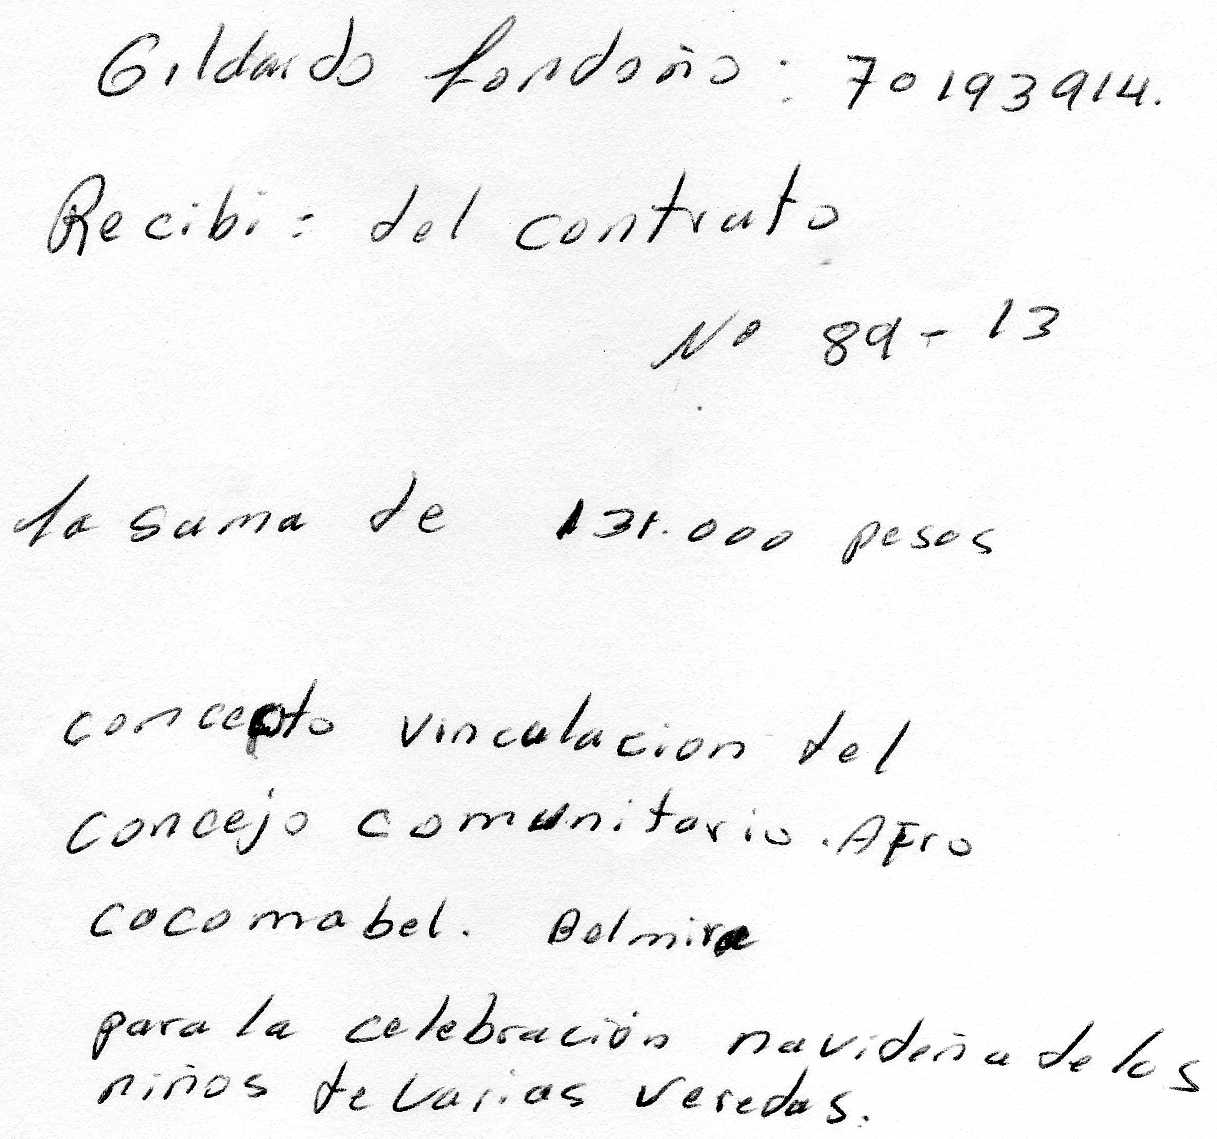 Gildardo Londoño: 70193914.
Recibi: del contrato
No 89-13
la suma de 131.000 pesos
concepto vinculacion del
concejo comunitario. AFro
cocomabel. Belmira
para la celebración navideña de los
niños de varias veredas.